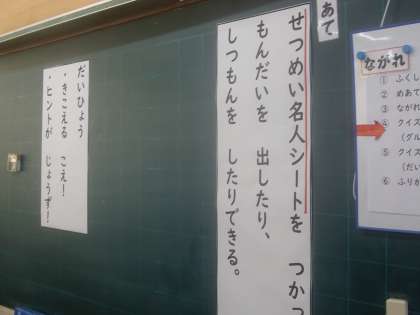 ながれ
① ふくし
② めあて
③ ながれ
④ クイズ
（グル
⑤ クイズ
（だい
⑥ ふりか
あて
せつめい名人シートを つかっ
もんだいを 出したり、
しつもんを したりできる。
だいひょう
・きこえる こえ！
・ヒントが じょうず！